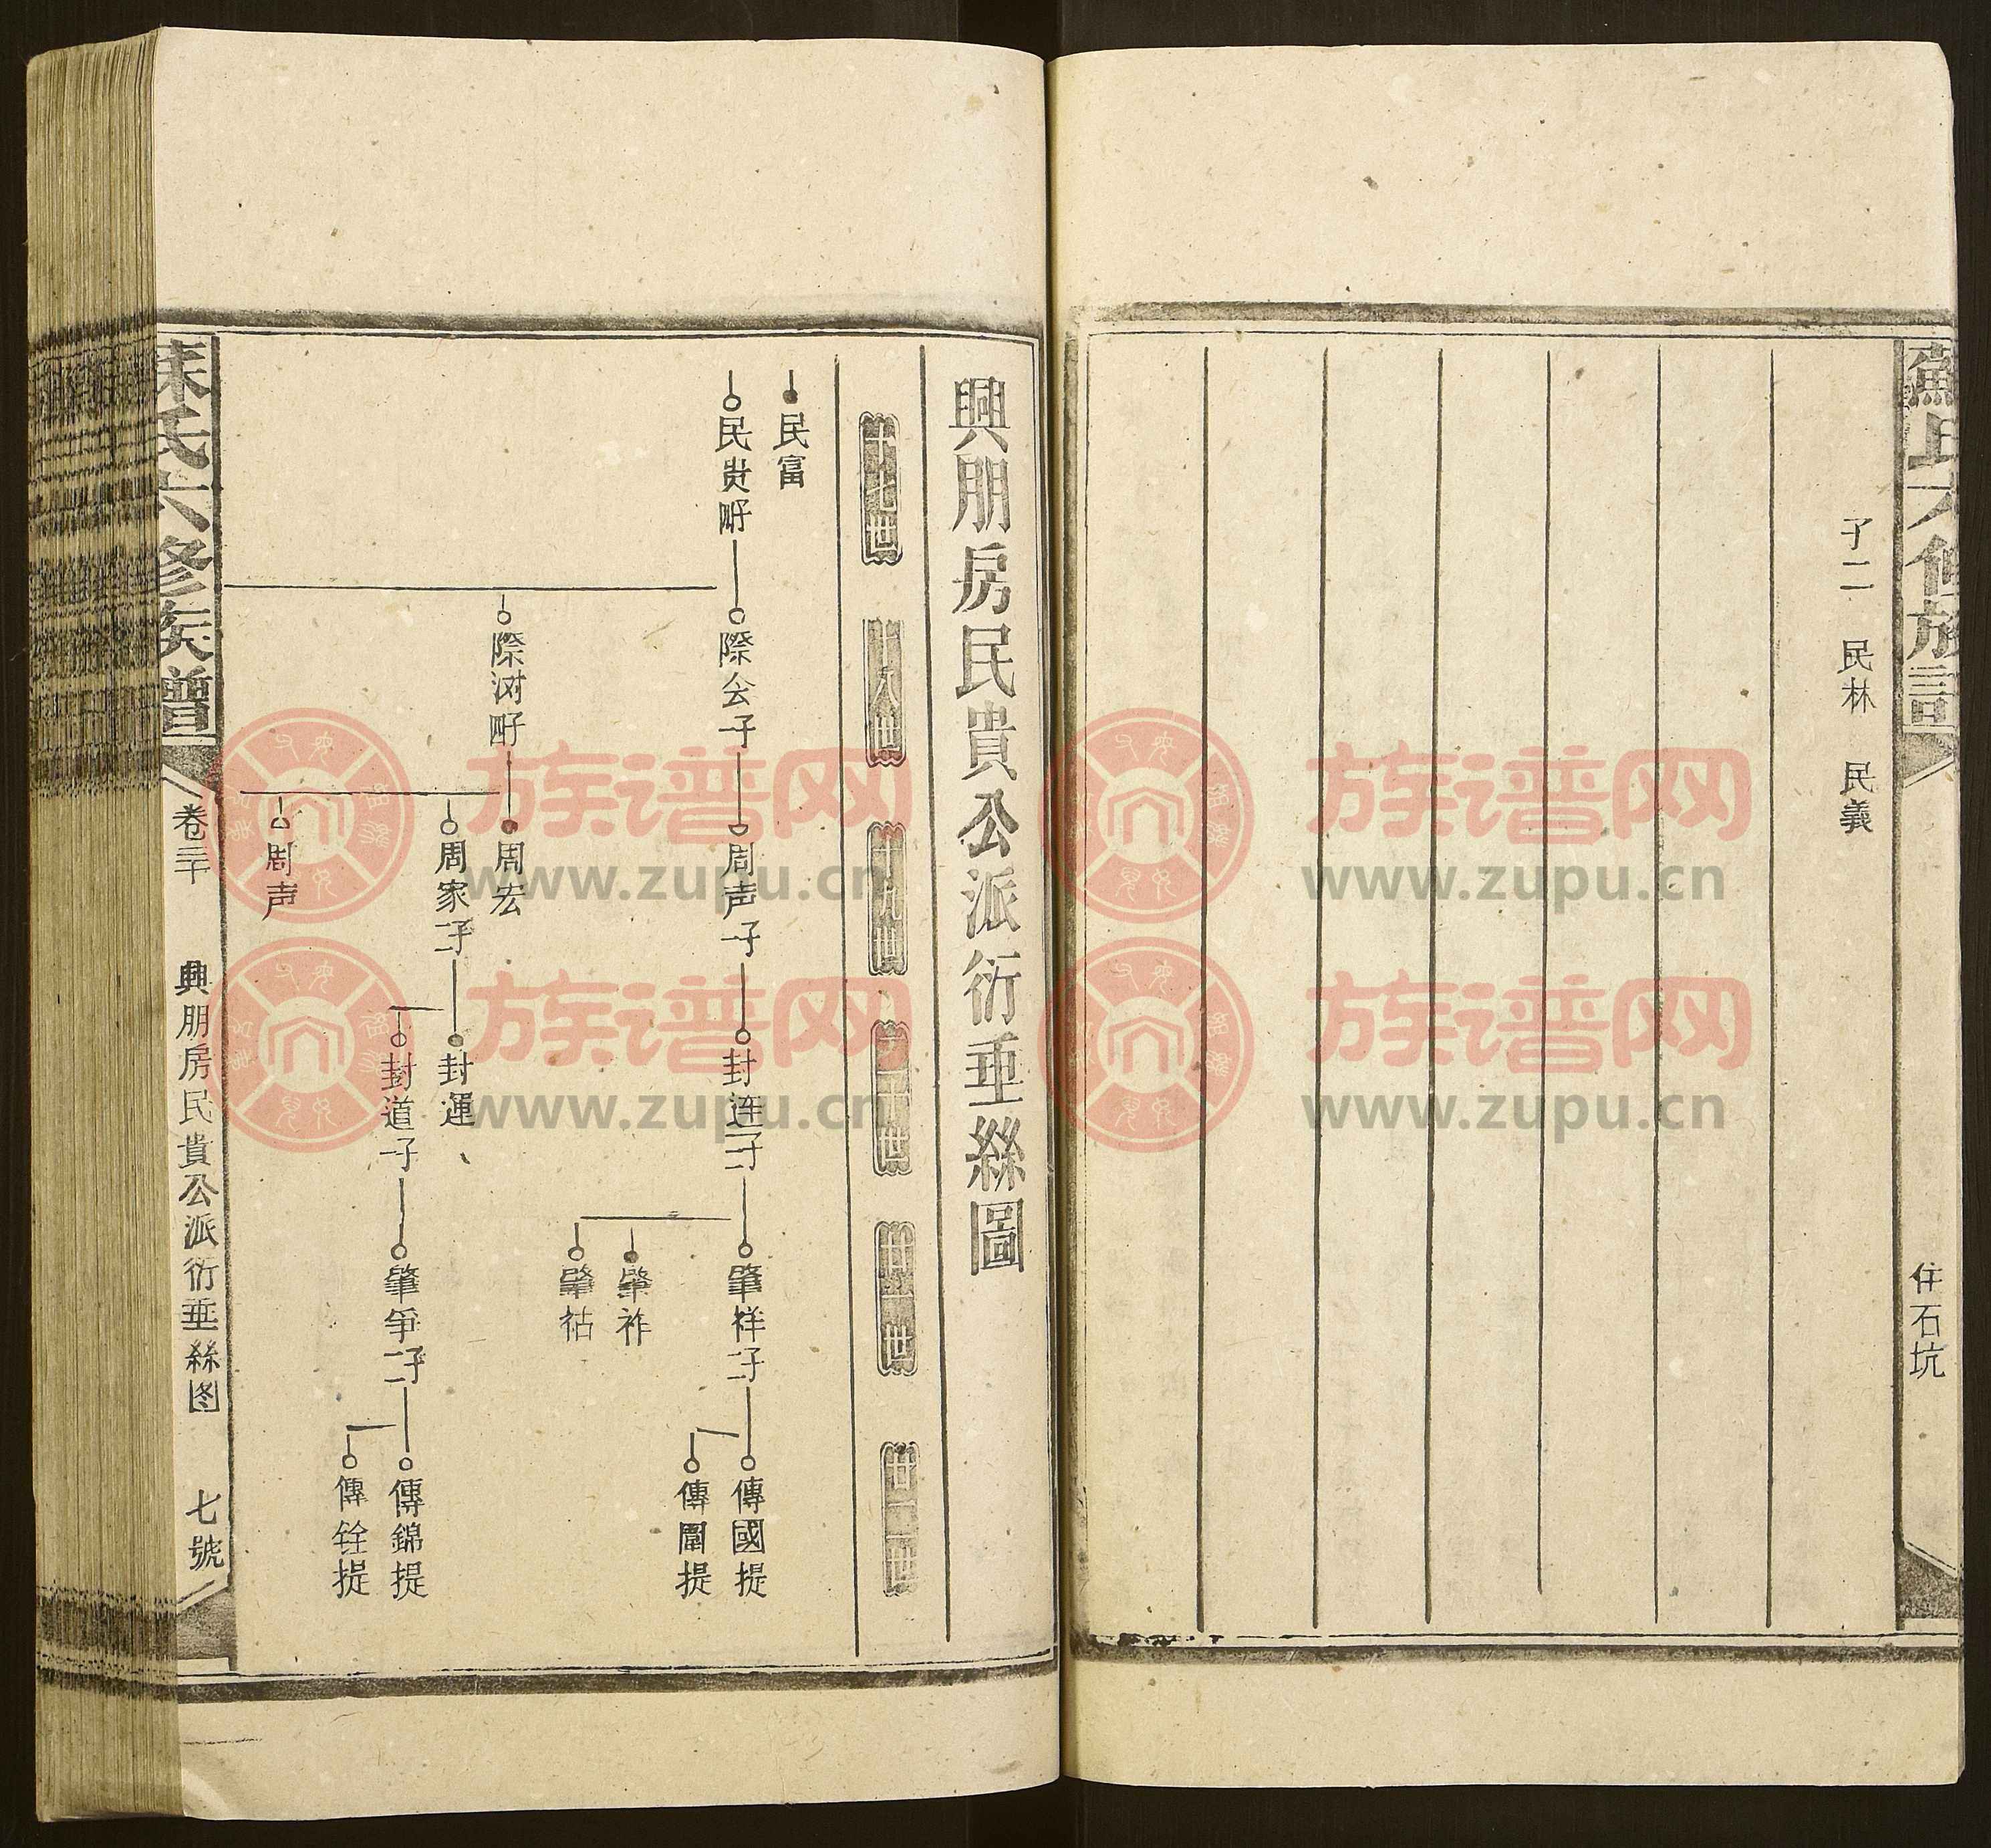 子二　民林　民義
住石坑
興朋房民貴公派衍垂絲圖
十七世
十八世
十九世
二十世
廿一世
廿二世
民富
民貴
際会子一
周声子一
封连子二
肇祥子二
傳國提
傳圍提
肇祚
肇祜
際澍
周宏
周家子二
封運
封道子一
肇争子二
傳錦提
傳铨提
周声
六修族譜
卷三十
興朋房民貴公派衍垂絲图
七號
族谱网
www.zupu.cn
族谱网
www.zupu.cn
族谱网
www.zupu.cn
族谱网
www.zupu.cn